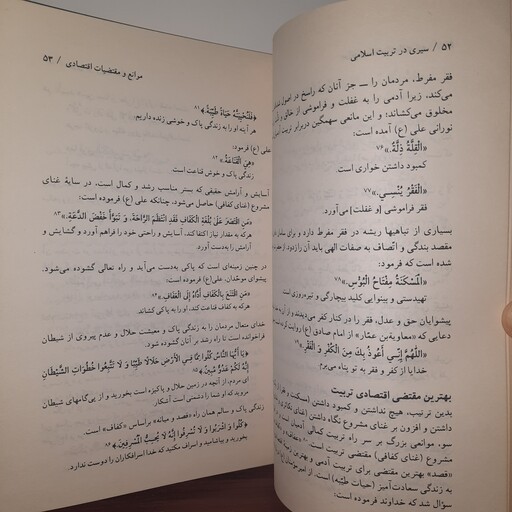 ۵۴ / سیری در تربیت اسلامی
فقر مفرط، مردمان را ــ جز آنان که راسخ در اصول
می‌کند، زیرا آدمی را به غفلت و فراموشی از خالق و
مخلوق می‌کشاند؛ و این مانعی سهمگین دربرابر تربیت
نورانی علی (ع) آمده است:
«اَلْقِلَّةُ ذِلَّةٌ.»۷۶
کمبود داشتن خواری است.
«اَلْفَقْرُ یُنْسِی.»۷۷
فقر فراموشی [و غفلت] می‌آورد.
بسیاری از تباهیها ریشه در فقر مفرط دارد و برای
مقصد بندگی و اتّصاف به صفات الهی باید آن را زدود. از
شده است که فرمود:
«اَلْمَسْکَنَةُ مِفْتَاحُ الْبُؤْسِ.»۷۸
تهیدستی و بینوایی کلید بیچارگی و تیره‌روزی است.
پیشوایان حق و عدل، فقر را در کنار کفر می‌دیدند و از
دعایی که «معاویة‌بن عمّار» از امام صادق (ع) روایت
«اَللّهُمَّ إِنِّی أَعُوذُ بِکَ مِنَ الْکُفْرِ وَ الْفَقْرِ.»
خدایا از کفر و فقر به تو پناه می‌برم.
بهترین مقتضی اقتصادی تربیت
بدین ترتیب، هیچ نداشتن و کمبود داشتن (مسکنت و فقر)
داشتن و افزون بر غنای مشروع نگاه داشتن (غنای
سو، موانعی بزرگ بر سر راه تربیت کمالی آدمیان است و
مشروع (غنای کفافی) مقتضی تربیت است.
«قصد» بهترین مقتضی برای تربیت آدمی و بهترین زمینهٔ
به زندگی سعادت‌آمیز (حیات طیّبه) است. از امیرمؤمنان
سؤال شد که خداوند فرموده است:
موانع و مقتضیات اقتصادی / ۵۳
﴿فَلَنُحْیِیَنَّهُ حَیَاةً طَیِّبَةً.﴾۸۱
هر آینه او را به زندگی پاک و خوشی زنده داریم.
علی (ع) فرمود:
«هِیَ الْقَنَاعَةُ.»۸۲
زندگی پاک و خوش قناعت است.
آسایش و آرامش حقیقی که بستر مناسب رشد و کمال است، در سایهٔ غنای
مشروع (غنای کفافی) حاصل می‌شود، چنانکه علی (ع) فرموده است:
«مَنِ اقْتَصَرَ عَلَی بُلْغَةِ الْکَفَافِ فَقَدِ انْتَظَمَ الرَّاحَةَ، وَ تَبَوَّأَ خَفْضَ الدَّعَةِ.»۸۳
هرکه به مقدار نیاز اکتفا کند، آسایش و راحتی خود را فراهم آورد و گشایش و
آرامش را به‌دست آورد.
در چنین زمینه‌ای است که پاکی به‌دست می‌آید و راه تعالی گشوده می‌شود.
پیشوای موحّدان، علی (ع) فرموده است:
«مَنِ اقْتَنَعَ بِالْکَفَافِ أَدَّاهُ إِلَی الْعَفَافِ.»۸۴
هرکه به کفاف قناعت کند، او را به پاکی کشاند.
خدای متعال مردمان را به زندگی پاک و معیشت حلال و عدم پیروی از شیطان
فراخوانده است تا راه رشد بر آنان گشوده شود.
﴿یَا أَیُّهَا النَّاسُ کُلُوا مِمَّا فِی الْأَرْضِ حَلَالًا طَیِّبًا وَ لَا تَتَّبِعُوا خُطُوَاتِ الشَّیْطَانِ
إِنَّهُ لَکُمْ عَدُوٌّ مُبِینٌ.﴾
ای مردم، از آنچه در زمین حلال و پاکیزه است بخورید و از پی گامهای شیطان
مروید که او شما را دشمنی است آشکار.
زندگی پاک و سالم همان راه «قصد و میانه» براساس «کفاف» است.
﴿کُلُوا وَ اشْرَبُوا وَ لَا تُسْرِفُوا إِنَّهُ لَا یُحِبُّ الْمُسْرِفِینَ.﴾
بخورید و بیاشامید و اسراف مکنید که خدا اسرافکاران را دوست ندارد.